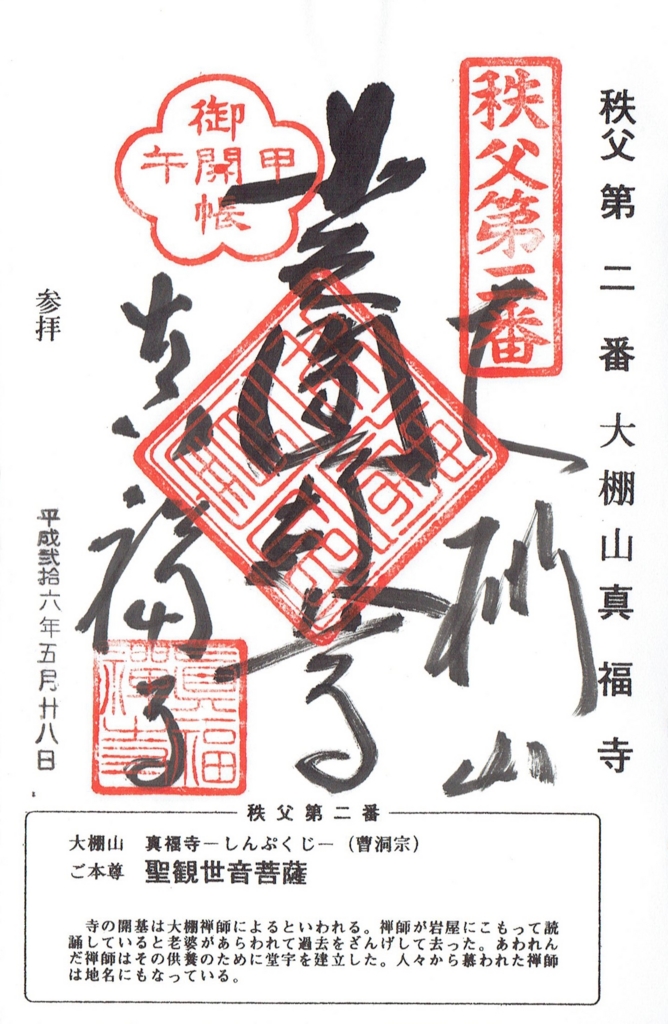 秩父第二番大棚山真福寺
秩父第二番
大棚山
御開帳
甲午
真福寺
真福禅寺
参拝
平成弐拾六年五月廿八日
秩父第二番
大棚山 真福寺－しんぷくじ－（曹洞宗）
ご本尊 聖観世音菩薩
寺の開基は大棚禅師によるといわれる。禅師が岩屋にこもって読
誦していると老婆があらわれて過去をざんげして去った。あわれん
だ禅師はその供養のために堂宇を建立した。人々から慕われた禅師
は地名にもなっている。